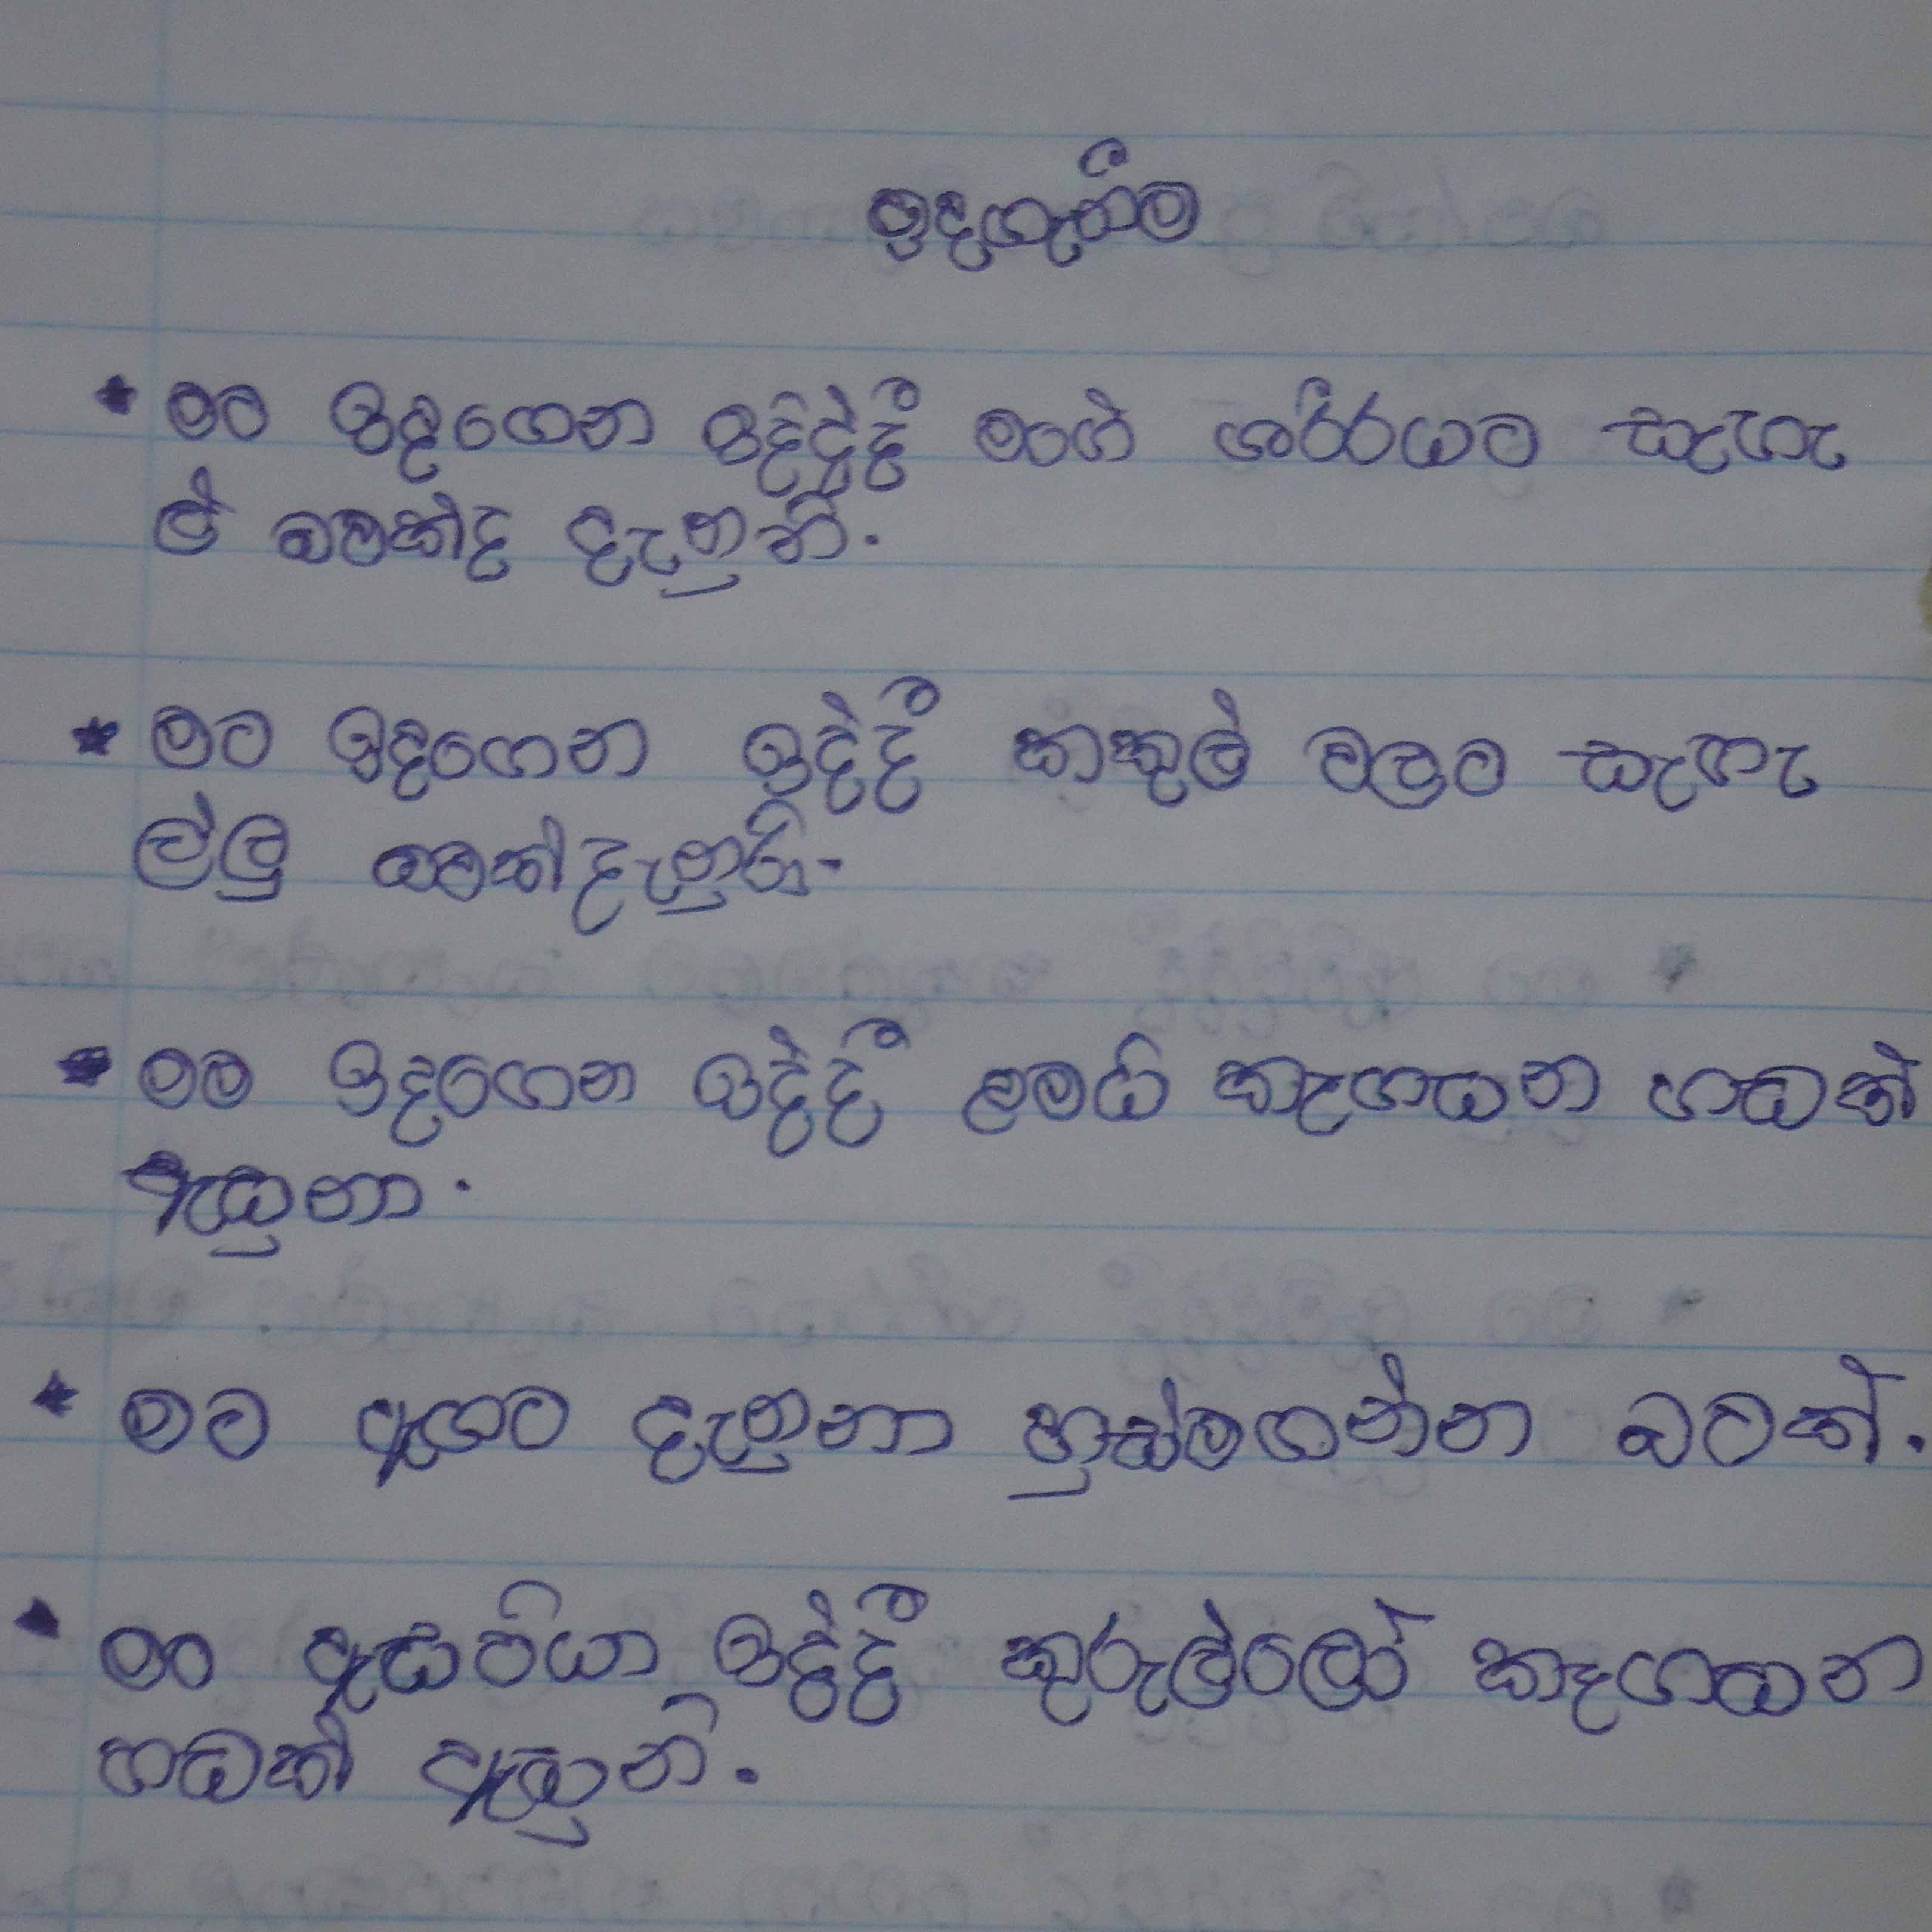 ඉදගැනීම
මට ඉදගෙන ඉද්දේදී මගේ ශරීරයට සැහැ
ල් බවක්ද දැනුනි.
මට ඉදගෙන ඉද්දේදී කකුල් වලට සැහැ
ල්ලු බවක් දැනුනි.
මම ඉදගෙන ඉද්දේදී ළමයි කෑගහන හඩක්
ඇහුනා.
මට ඇගට දැනුනා හුස්මගන්න බවක්.
මං ඇසපියා ඉද්දේදී කුරුල්ලෝ කෑගහන
හඩක් ඇහුනි.